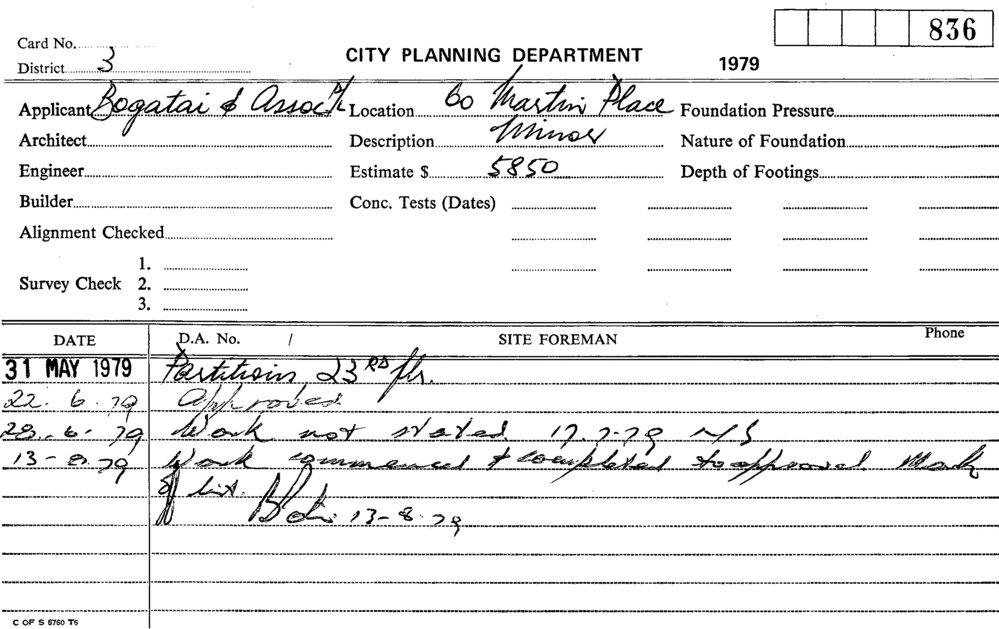 836
Card No.
CITY PLANNING DEPARTMENT 1979
District 3
Applicant Bogatai & Assoc P/L Location 60 Martin Place Foundation Pressure
Architect Description Minor Nature of Foundation
Engineer Estimate $ 5850 Depth of Footings
Builder Conc. Tests (Dates)
Alignment Checked
1.
Survey Check 2.
3.
DATE D.A. No. / SITE FOREMAN Phone
31 MAY 1979 Partitions 23RD flr.
22. 6. 79 Approved
28. 6. 79 Work not stated 17.7.79 N/S
13-8.79 Work commenced & completed to approval Mark
off list.
13-8.79
C OF S 6760 T6